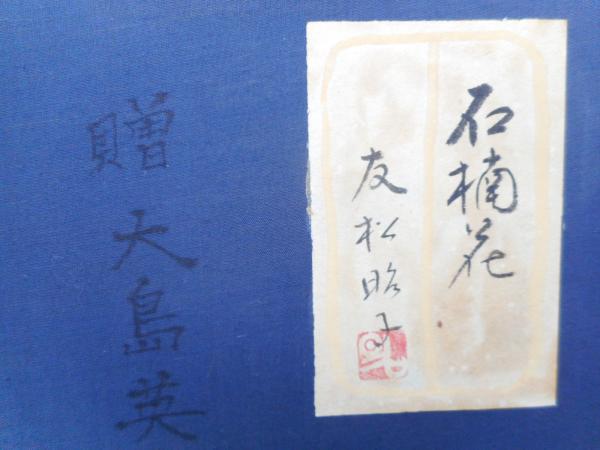 石楠花
友松昭子
贈
天島英